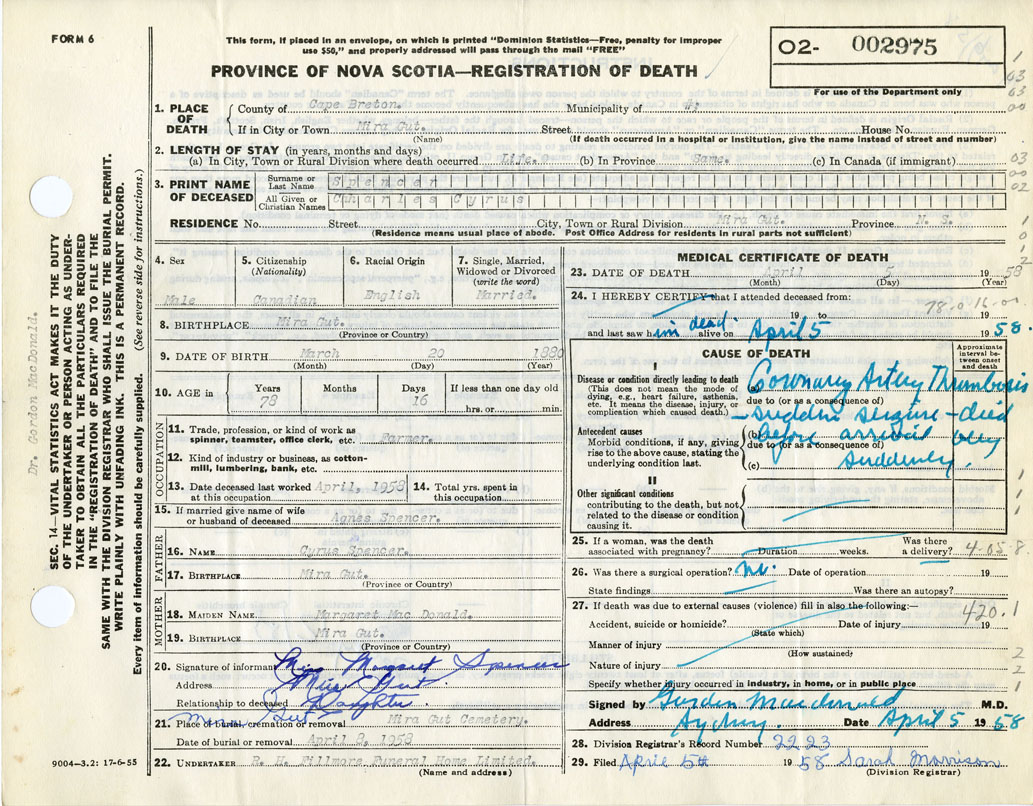 FORM 6
This form, if placed in an envelope, on which is printed "Dominion Statistics—Free, penalty for improper
use $50," and properly addressed will pass through the mail "FREE"
PROVINCE OF NOVA SCOTIA—REGISTRATION OF DEATH
O2- 002975
For use of the Department only
1. PLACE OF DEATH
County of Cape Breton. Municipality of #1
If in City or Town Mira Gut. Street House No.
(Name) (If death occurred in a hospital or institution, give the name instead of street and number)
2. LENGTH OF STAY (in years, months and days)
(a) In City, Town or Rural Division where death occurred Life. (b) In Province Same. (c) In Canada (if immigrant)
3. PRINT NAME OF DECEASED
Surname or Last Name Spencer
All Given or Christian Names Charles Cyrus
RESIDENCE No. Street City, Town or Rural Division Mira Gut. Province N. S.
(Residence means usual place of abode. Post Office Address for residents in rural parts not sufficient)
4. Sex Male
5. Citizenship (Nationality) Canadian
6. Racial Origin English
7. Single, Married, Widowed or Divorced (write the word) Married.
8. BIRTHPLACE Mira Gut.
(Province or Country)
9. DATE OF BIRTH March 20 1880
(Month) (Day) (Year)
10. AGE in Years 78 Months Days 16 If less than one day old hrs. or min.
OCCUPATION
11. Trade, profession, or kind of work as
spinner, teamster, office clerk, etc. Farmer.
12. Kind of industry or business, as cotton-
mill, lumbering, bank, etc.
13. Date deceased last worked at this occupation April, 1958
14. Total yrs. spent in this occupation
15. If married give name of wife
or husband of deceased Agnes Spencer.
FATHER
16. NAME Cyrus Spencer.
17. BIRTHPLACE Mira Gut.
(Province or Country)
MOTHER
18. MAIDEN NAME Margaret Mac Donald.
19. BIRTHPLACE Mira Gut.
(Province or Country)
20. Signature of informant Miss Margaret Spencer
Address Mira Gut.
Relationship to deceased Daughter.
21. Place of burial, cremation or removal Mira Gut Cemetery.
Date of burial or removal April 8, 1958
22. UNDERTAKER R. H. Fillmore Funeral Home Limited.
(Name and address)
9004—3.2: 17-6-55
MEDICAL CERTIFICATE OF DEATH
23. DATE OF DEATH April 5 1958
(Month) (Day)
24. I HEREBY CERTIFY that I attended deceased from:
78-0-16-00
19 to 19
and last saw him dead alive on April 5 1958.
CAUSE OF DEATH
Approximate interval between onset and death
I
Disease or condition directly leading to death
(This does not mean the mode of
dying, e.g., heart failure, asthenia,
etc. It means the disease, injury, or
complication which caused death.)
(a) Coronary Artery Thrombosis
due to (or as a consequence of)
— sudden seizure — died
Antecedent causes
Morbid conditions, if any, giving
rise to the above cause, stating the
underlying condition last.
(b) before arrival very
due to (or as a consequence of)
(c) suddenly.
II
Other significant conditions
contributing to the death, but not
related to the disease or condition
causing it.
25. If a woman, was the death
associated with pregnancy? Duration weeks. Was there a delivery?
4-05-8
26. Was there a surgical operation? No. Date of operation 19
State findings Was there an autopsy?
27. If death was due to external causes (violence) fill in also the following:—
420.1
Accident, suicide or homicide? Date of injury 19
(State which)
Manner of injury
(How sustained)
Nature of injury
Specify whether injury occurred in industry, in home, or in public place
Signed by Gordon Macdonald M.D.
Address Sydney. Date April 5 1958
28. Division Registrar's Record Number 2223
29. Filed April 5th 1958 Sarah Morrison
(Division Registrar)
Dr. Gordon MacDonald.
SEC. 14—VITAL STATISTICS ACT MAKES IT THE DUTY
OF THE UNDERTAKER OR PERSON ACTING AS UNDER-
TAKER TO OBTAIN ALL THE PARTICULARS REQUIRED
IN THE "REGISTRATION OF DEATH" AND TO FILE THE
SAME WITH THE DIVISION REGISTRAR WHO SHALL ISSUE THE BURIAL PERMIT.
WRITE PLAINLY WITH UNFADING INK. THIS IS A PERMANENT RECORD.
Every item of information should be carefully supplied. (See reverse side for instructions.)